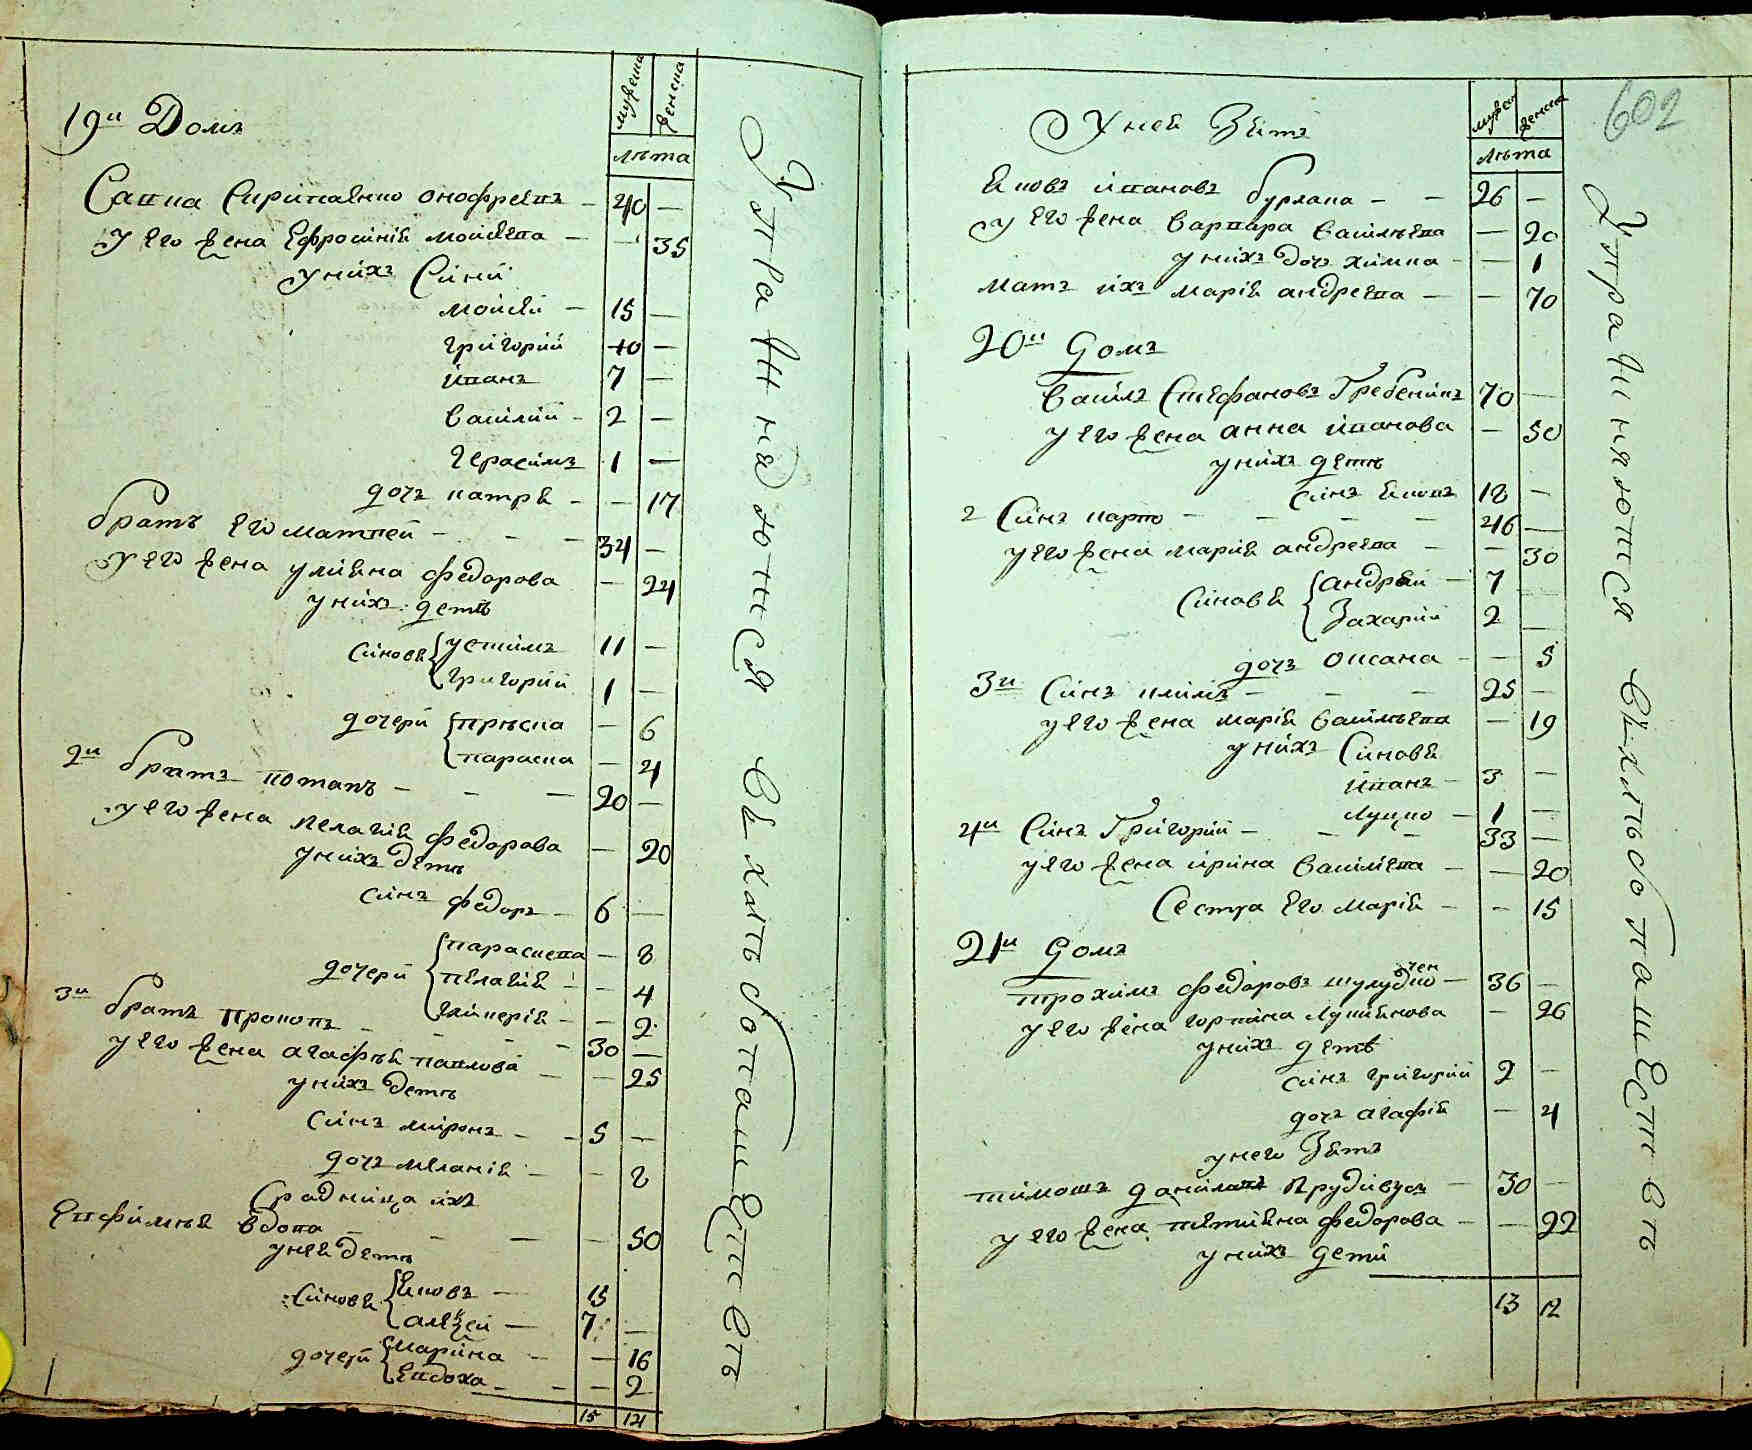 мужеска женска
лѣта
19й Домъ
Савка Скрипченко Онофреевъ – 40 –
У его жена Ефросинія Мойсеева – – 35
У нихъ Сини
Мойсей – 15 –
Григорий 10 –
Иванъ 7 –
Василий – 2 –
Герасимъ 1 –
дочъ Катря – – 17
братъ его Матвей – – – 34 –
У его жена Улияна Федорова – 24
У нихъ детѣ
Синовя Устимъ 11 –
Григорий 1 –
дочери Приска – 6
Параска – 4
2й братъ Потапъ – – – 20 –
У его жена Пелагия Федорова – 20
у нихъ детѣ
синъ Федоръ – 6 –
дочери Параскева – 8
Пелагия – – 4
Гликерія – – 2
3й братъ Прокопъ – – – 30 –
у его жена Агафѣя Павлова – – 25
у нихъ детѣ
Синъ Миронъ – – 5 –
дочъ Меланія – – 8
Сродница ихъ
Евфимия вдова – – – – 50
у нея детѣ
Синовя Яковъ – 15
Алексей – 7 –
дочери Марина – – 16
Евдоха – – – 2
15 14
Управляются
въ хлѣбопашествѣ
602
мужеска женска
лѣта
У ней Зять
Яковъ Ивановъ Бурлака – – 26 –
у его жена Варвара Василѣева – 20
у нихъ дочъ Химка – – 1
Матъ ихъ Марія Андреева – – 70
20й Домъ
Василъ Стефановъ Гребеникъ 70 –
у его жена Анна Иванова – 50
у нихъ детѣ
Синъ Яковъ 18 –
2 Синъ Карпо – – – – 46 –
у его жена Марія Андреева – – 30
Синовя Андрей – 7
Захарий 2 –
дочъ Оксана – – 5
3й Синъ Климъ – – – 25 –
у его жена Марія Василѣева – 19
у нихъ Синовя
Иванъ – 3 –
Луцко – 1 –
4й Синъ Григорий – – – 33 –
у его жена Ирина Василиева – – 20
Сестра его Марія – – 15
21й Домъ
Трохимъ Федоровъ Шулудченко – 36 –
у его жена Горпина Лукиянова – 26
у нихъ детѣ
синъ Григорий 2 –
дочъ Агафія – 4
у него Зять
Тимошъ Даниловъ Прудивусъ – 30 –
у его жена Тетияна Федорова – – 22
у нихъ дети
13 12
Упражняются
въ хлѣбопашествѣ